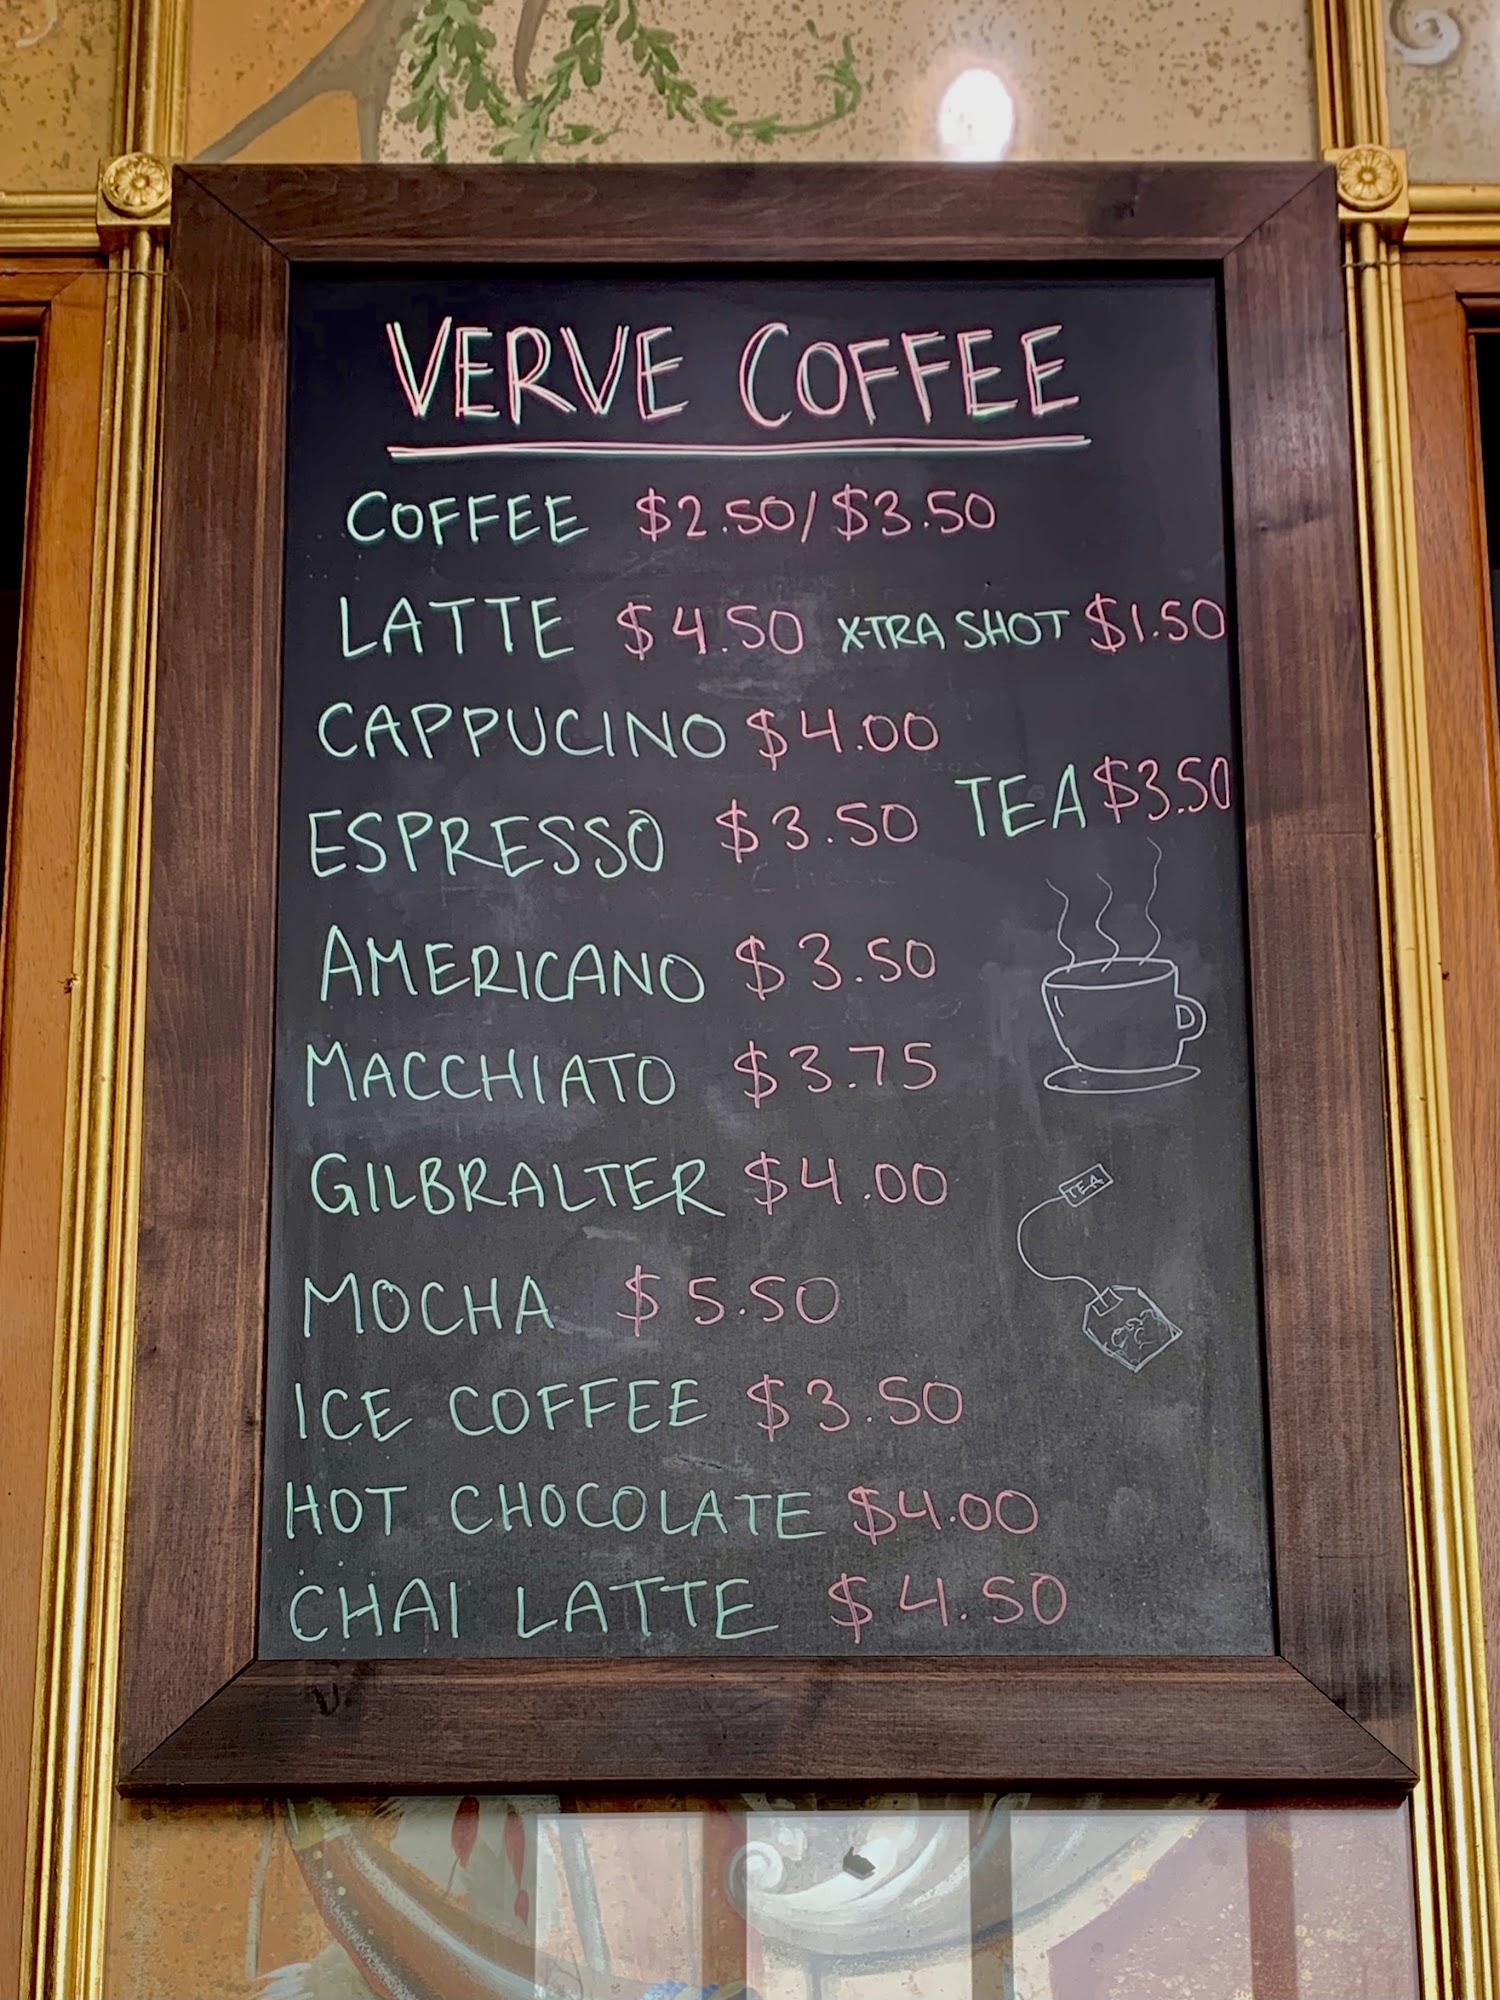 VERVE COFFEE
COFFEE $2.50/$3.50
LATTE $4.50 X-TRA SHOT $1.50
CAPPUCINO $4.00
TEA $3.50
ESPRESSO $3.50
AMERICANO $3.50
MACCHIATO $3.75
GILBRALTER $4.00
TEA
MOCHA $5.50
ICE COFFEE $3.50
HOT CHOCOLATE $4.00
CHAI LATTE $4.50